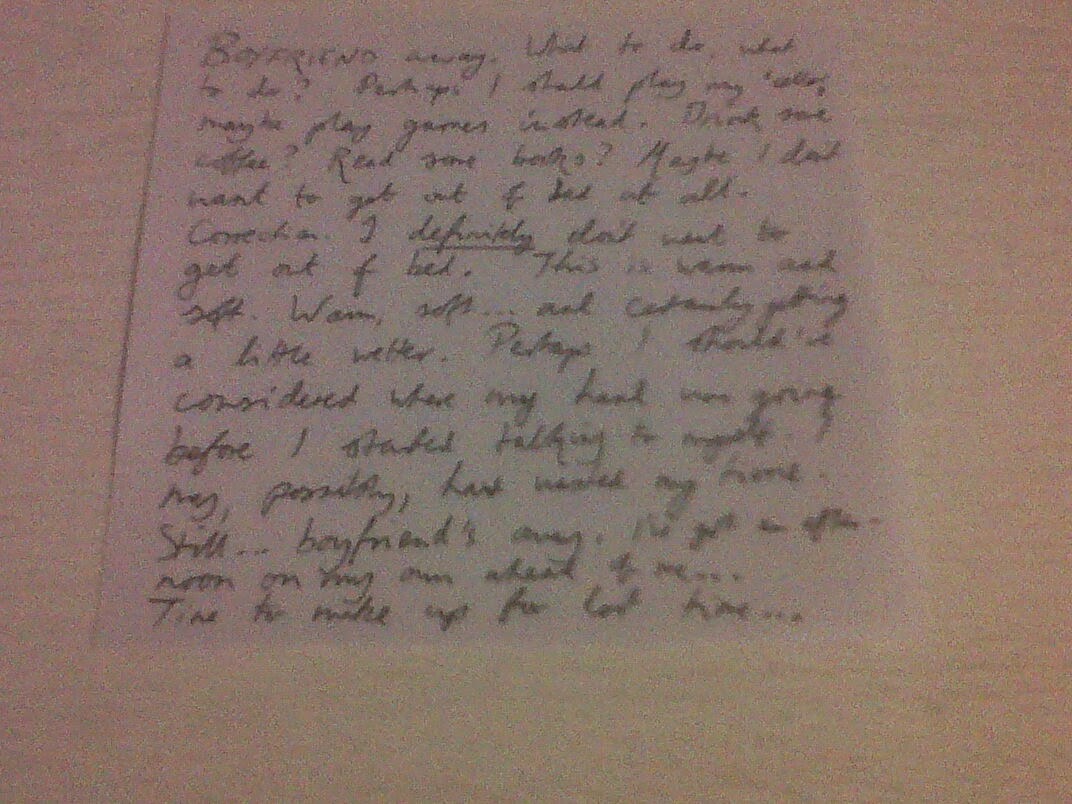 BOYFRIEND away. What to do, what
to do? Perhaps I shall play my 'cello,
maybe play games instead. Drink some
coffee? Read some books? Maybe I don't
want to get out of bed at all.
Correction. I definitely don't want to
get out of bed. This is warm and
soft. Warm, soft... and certainly getting
a little wetter. Perhaps I should've
considered where my hand was going
before I started talking to myself. I
may, possibly, have missed my train.
Still... boyfriend's away. I've got an after-
noon on my own ahead of me...
Time to make up for lost time...